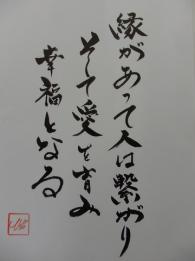 縁があって人は繋がり
そして愛を育み
幸福となる